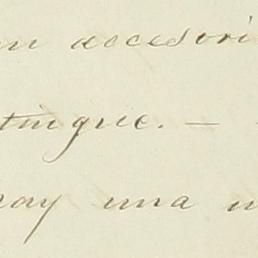 en accesori
tingue. —
hay una